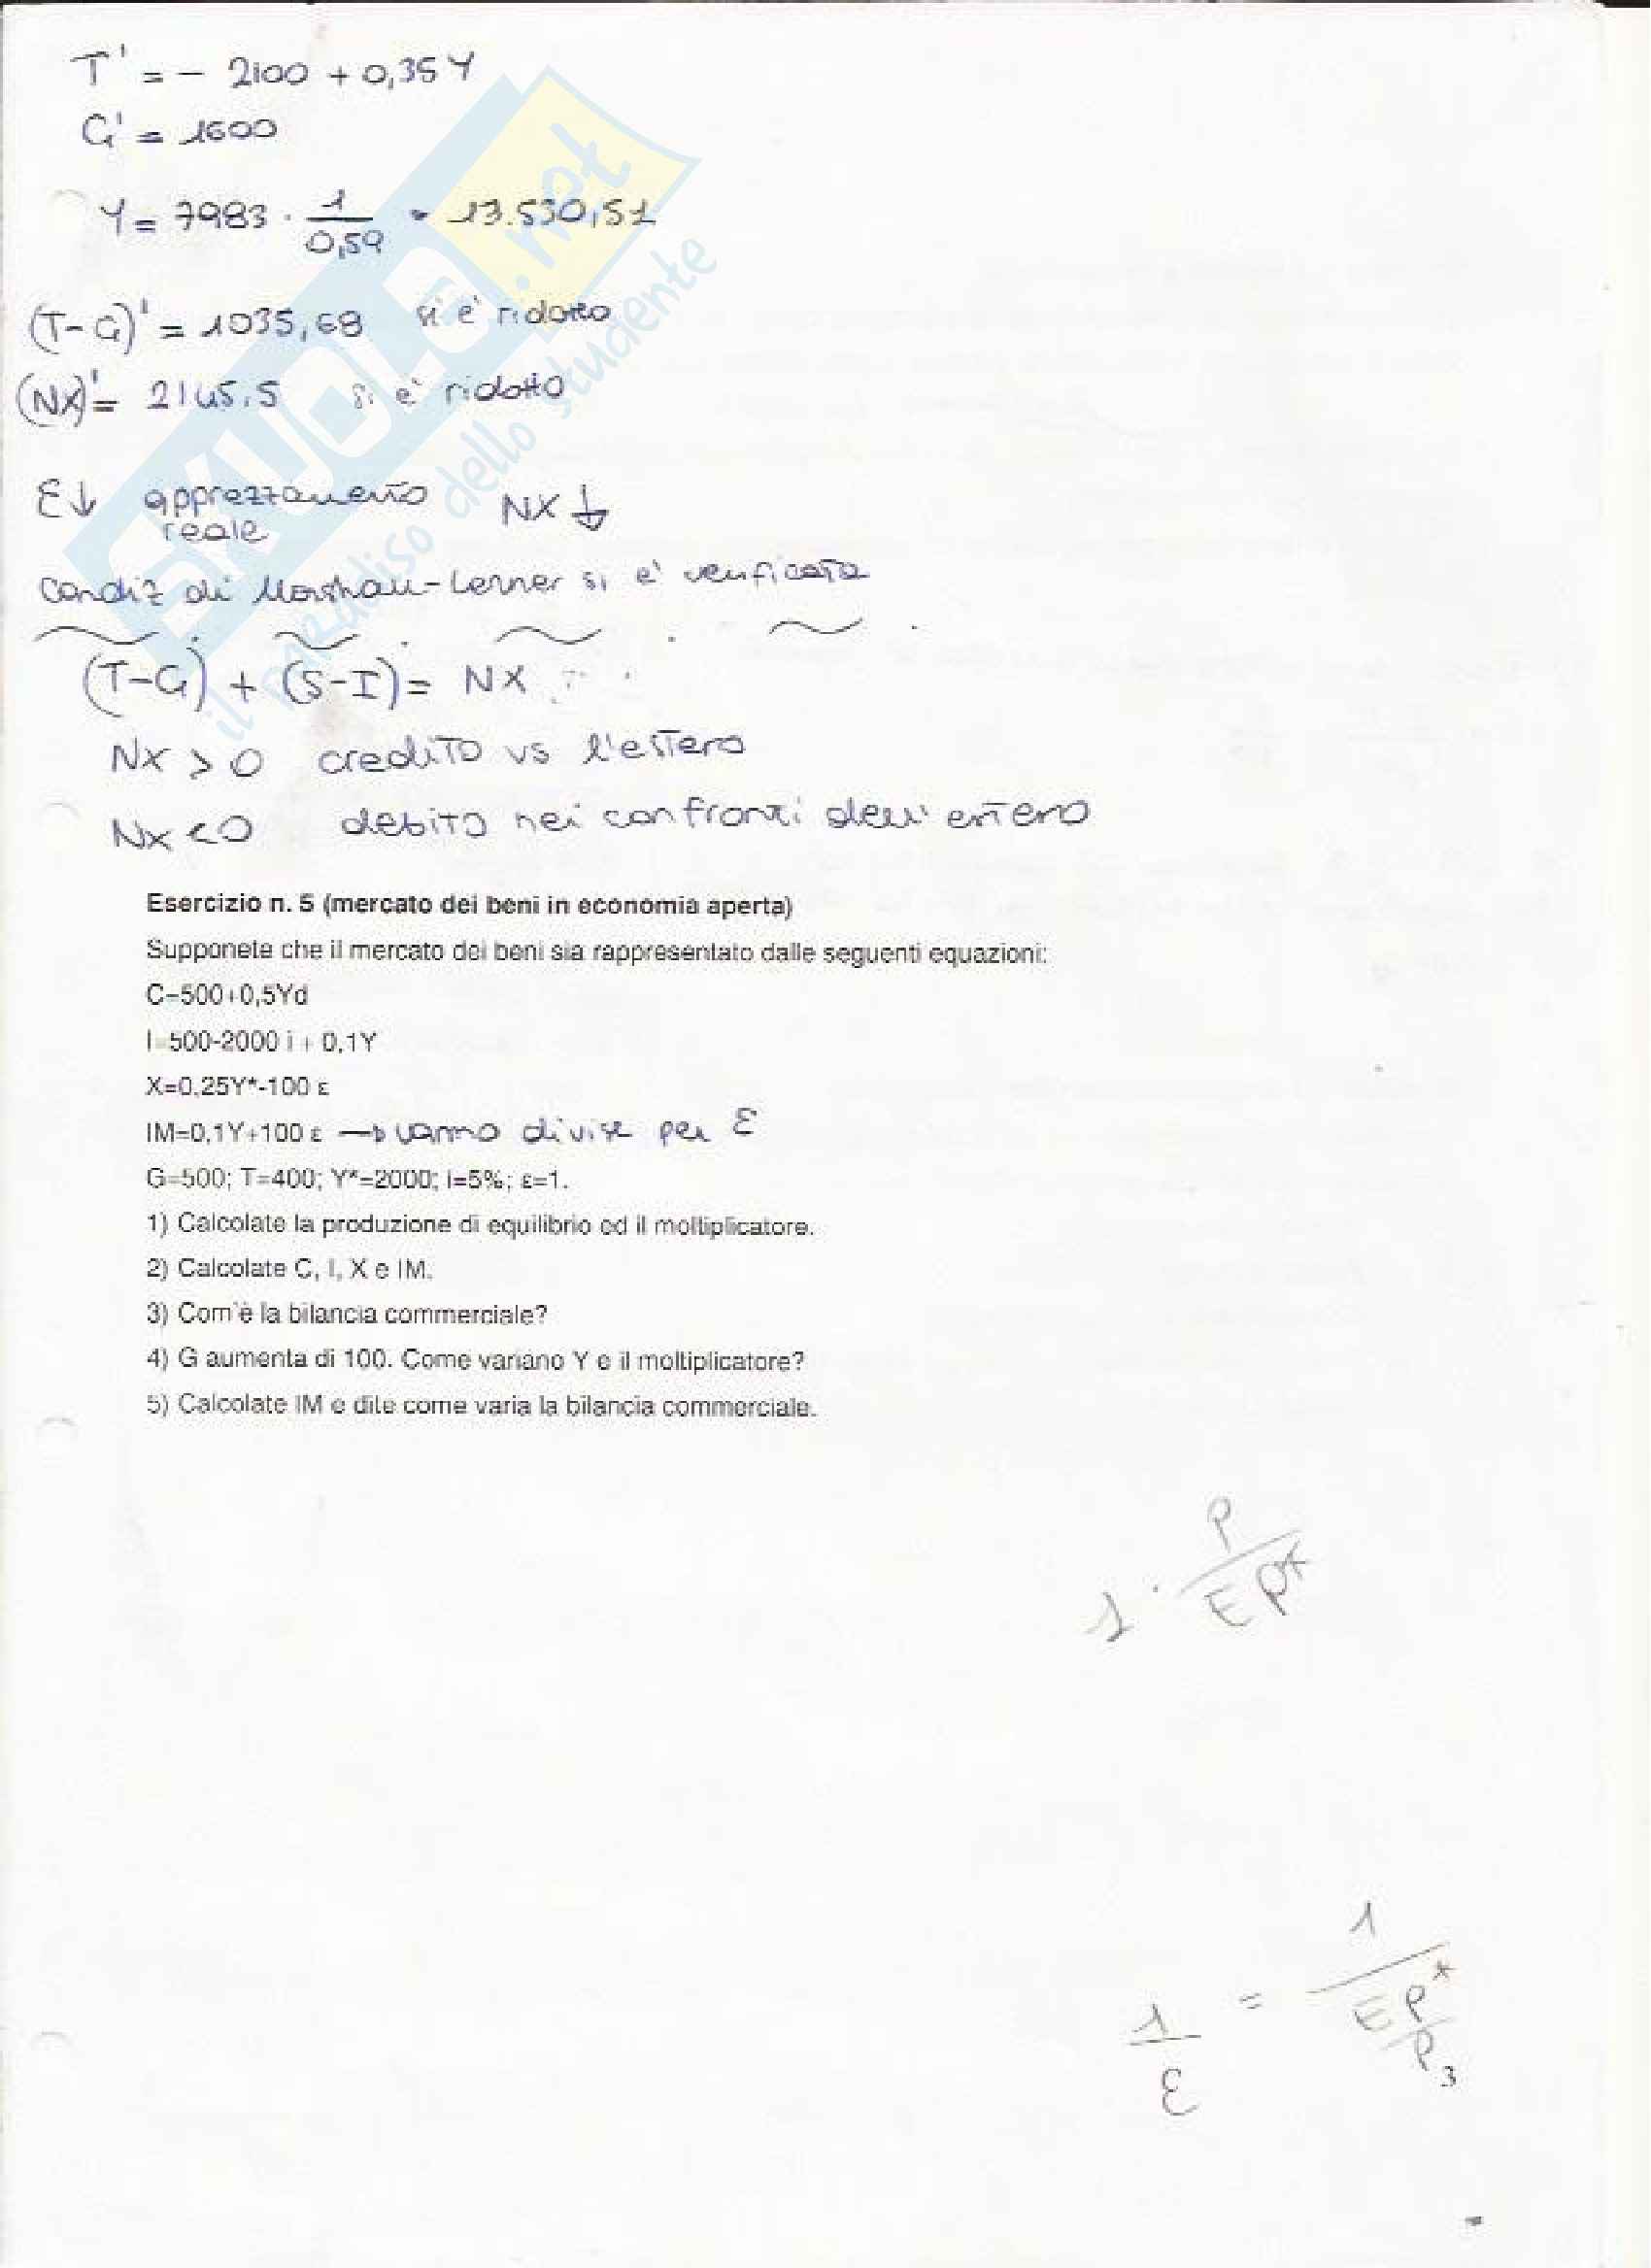 T' = - 2100 + 0,35Y
G' = 1600
Y = 7983 · 1/0,59 = 13.530,51
(T-G)' = 1035,68 si è ridotto
(NX)' = 2145.5 si è ridotto
ε↓ apprezzamento reale NX ↓
Condiz di Marshall-Lerner si è verificata
(T-G) + (S-I) = NX
NX > 0 credito vs l'estero
NX < 0 debito nei confronti dell'estero
Esercizio n. 5 (mercato dei beni in economia aperta)
Supponete che il mercato dei beni sia rappresentato dalle seguenti equazioni:
C=500+0,5Yd
I=500-2000 i + 0,1Y
X=0,25Y*-100 ε
IM=0,1Y+100 ε → vanno divise per ε
G=500; T=400; Y*=2000; i=5%; ε=1.
1) Calcolate la produzione di equilibrio ed il moltiplicatore.
2) Calcolate C, I, X e IM.
3) Com'è la bilancia commerciale?
4) G aumenta di 100. Come variano Y e il moltiplicatore?
5) Calcolate IM e dite come varia la bilancia commerciale.
1 · P/EP*
1/ε = 1/(EP*/P)
3
SKUOLA.net
il paradiso dello studente